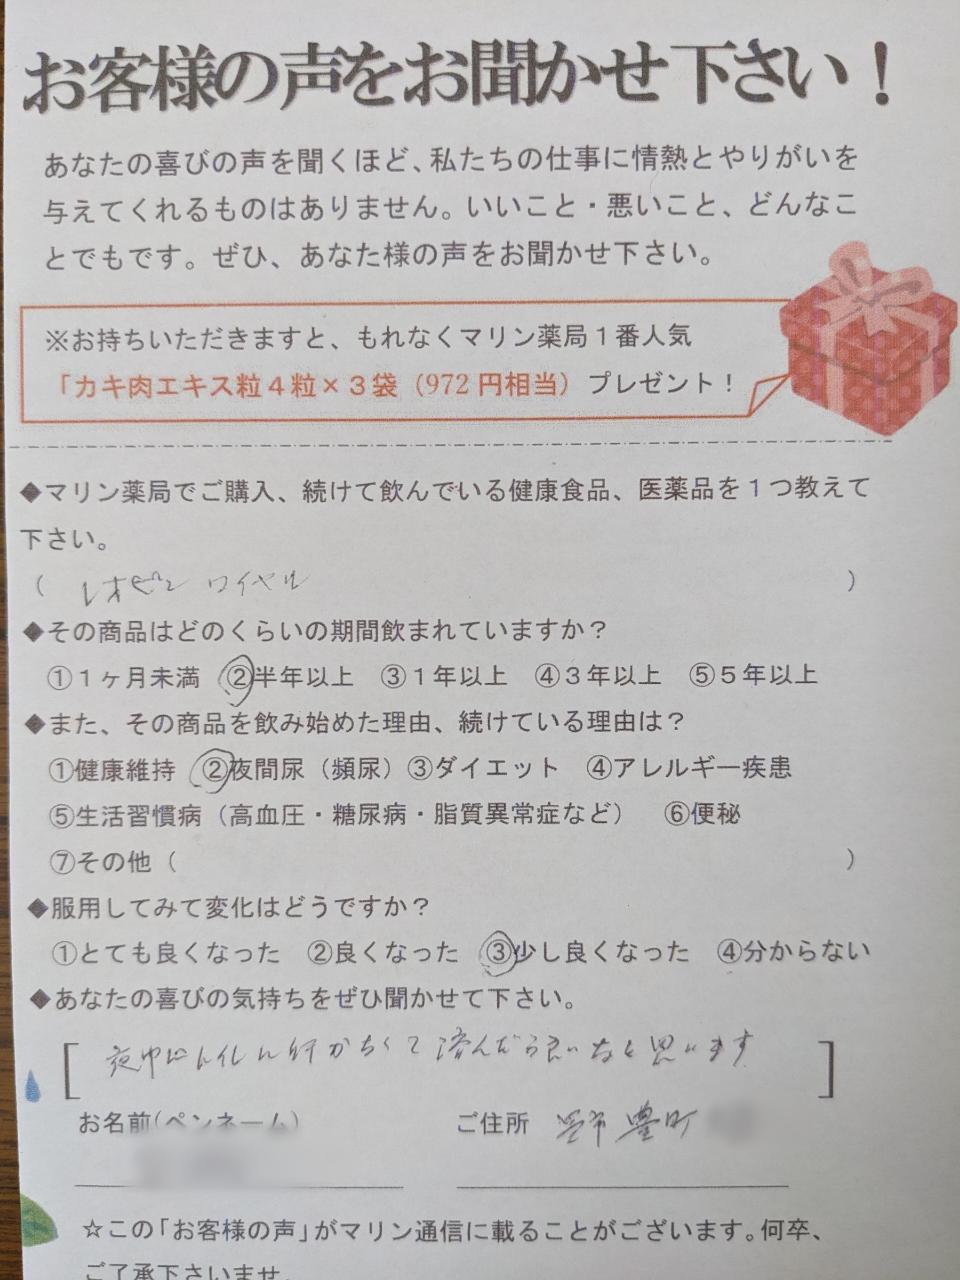 お客様の声をお聞かせ下さい！
あなたの喜びの声を聞くほど、私たちの仕事に情熱とやりがいを
与えてくれるものはありません。いいこと・悪いこと、どんなこ
とでもです。ぜひ、あなた様の声をお聞かせ下さい。
※お持ちいただきますと、もれなくマリン薬局１番人気
「カキ肉エキス粒４粒×３袋（972 円相当）プレゼント！
◆マリン薬局でご購入、続けて飲んでいる健康食品、医薬品を１つ教えて
下さい。
（ レオピン ロイヤル ）
◆その商品はどのくらいの期間飲まれていますか？
①１ヶ月未満 ②半年以上 ③１年以上 ④３年以上 ⑤５年以上
◆また、その商品を飲み始めた理由、続けている理由は？
①健康維持 ②夜間尿（頻尿）③ダイエット ④アレルギー疾患
⑤生活習慣病（高血圧・糖尿病・脂質異常症など） ⑥便秘
⑦その他（ ）
◆服用してみて変化はどうですか？
①とても良くなった ②良くなった ③少し良くなった ④分からない
◆あなたの喜びの気持ちをぜひ聞かせて下さい。
[ 夜中にトイレに行かなくて済んだら良いなと思います ]
お名前(ペンネーム) ご住所 豊町
☆この「お客様の声」がマリン通信に載ることがございます。何卒、
ご了承下さいませ。